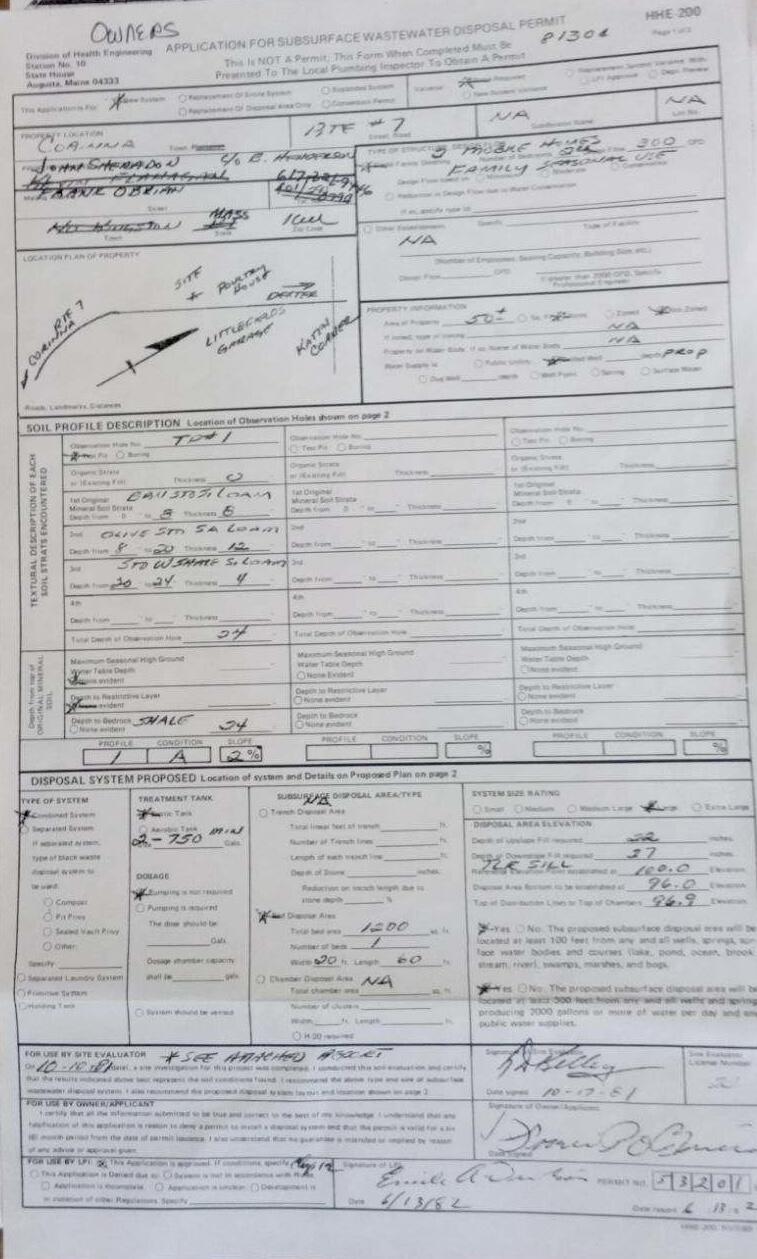 OWNERS
HHE-200
Division of Health Engineering
Station No. 10
State House
Augusta, Maine 04333
APPLICATION FOR SUBSURFACE WASTEWATER DISPOSAL PERMIT
This Is NOT A Permit, This Form When Completed Must Be
Presented To The Local Plumbing Inspector To Obtain A Permit
Page 1 of 2
This Application Is For
New System
Replacement Of Entire System
Replacement Of Disposal Area Only
Expanded System
PROPERTY LOCATION
CORINNA
RTE #7
NA
NA
JOHN SHERADON c/o B. HENDERSON
FRANK OBRIAN
MASS
Town
State
Zip Code
MOBILE HOMES
300 GPD
FAMILY SEASONAL USE
Other Establishment
Specify
Type of Facility
NA
(Number of Employees, Seating Capacity, Building Size, etc.)
Professional Engineer
LOCATION PLAN OF PROPERTY
SITE
POULTRY
HOUSE
DEXTER
RTE 7
CORINNA
LITTLEFIELDS
GARAGE
CORNER
Roads, Landmarks, Distances
PROPERTY INFORMATION
Area of Property 50±
NA
NA
Water Supply is
Public Utility
depth PROP
Dug Well
depth
Well Point
Spring
Surface Water
SOIL PROFILE DESCRIPTION Location of Observation Holes shown on page 2
TEXTURAL DESCRIPTION OF EACH
SOIL STRATA ENCOUNTERED
Observation Hole No. TP#1
Test Pit
Boring
Organic Strata
or (Existing Fill) Thickness 0
1st Original
Mineral Soil Strata
Depth from 0 " to 8 " Thickness 8
2nd OLIVE STO SA LOAM
Depth from 8 " to 20 " Thickness 12
3rd STO W SHALE SI LOAM
Depth from 20 to 24 " Thickness 4
4th
Depth from " to " Thickness
Total Depth of Observation Hole 24
Observation Hole No.
Test Pit
Boring
Organic Strata
or (Existing Fill) Thickness
1st Original
Mineral Soil Strata
Depth from 0 " to " Thickness
2nd
Depth from " to " Thickness
3rd
Depth from " to " Thickness
4th
Depth from " to " Thickness
Total Depth of Observation Hole
Observation Hole No.
Test Pit
Boring
Organic Strata
or (Existing Fill) Thickness
1st Original
Mineral Soil Strata
Depth from 0 " to " Thickness
2nd
Depth from " to " Thickness
3rd
Depth from " to " Thickness
4th
Depth from " to " Thickness
Total Depth of Observation Hole
Depth from top of
ORIGINAL MINERAL
SOIL
Maximum Seasonal High Ground
Water Table Depth
None evident
Depth to Restrictive Layer
None evident
Depth to Bedrock SHALE 24
None evident
Maximum Seasonal High Ground
Water Table Depth
None Evident
Depth to Restrictive Layer
None evident
Depth to Bedrock
None evident
Maximum Seasonal High Ground
Water Table Depth
None evident
Depth to Restrictive Layer
None evident
Depth to Bedrock
None evident
PROFILE CONDITION SLOPE
1 A 2%
PROFILE CONDITION SLOPE
%
PROFILE CONDITION SLOPE
%
DISPOSAL SYSTEM PROPOSED Location of system and Details on Proposed Plan on page 2
TYPE OF SYSTEM
Combined System
Separated System
If separated system,
type of black waste
disposal system to
be used:
Compost
Pit Privy
Sealed Vault Privy
Other:
Specify
Separated Laundry System
Primitive System
Holding Tank
TREATMENT TANK
Septic Tank
Aerobic Tank
2-750 MIN
Gals.
DOSAGE
Pumping is not required
Pumping is required
The dose should be:
Gals.
Dosage chamber capacity
shall be gals.
System should be vented
SUBSURFACE DISPOSAL AREA/TYPE
NA
Trench Disposal Area
Total linear feet of trench ft.
Number of Trench lines
Length of each trench line ft.
Depth of Stone inches.
Reduction on trench length due to
stone depth %
Bed Disposal Area
Total bed area 1200 sq. ft.
Number of beds 1
Width 20 ft. Length 60 ft.
Chamber Disposal Area NA
Total chamber area sq. ft.
Number of clusters
Width ft. Length ft.
H-20 required
SYSTEM SIZE RATING
Small
Medium
Medium Large
Large
Extra Large
DISPOSAL AREA ELEVATION
Depth of Upslope Fill required 22 inches.
Depth of Downslope Fill required 27 inches.
TLR SILL
100.0 Elevation
Disposal Area Bottom to be established at 96.0 Elevation
Top of Distribution Lines or Top of Chambers 96.9 Elevation
Yes No. The proposed subsurface disposal area will be
located at least 100 feet from any and all wells, springs, sur-
face water bodies and courses (lake, pond, ocean, brook
stream, river), swamps, marshes, and bogs.
Yes No. The proposed subsurface disposal area will be
located at least 300 feet from any and all wells and spring
producing 2000 gallons or more of water per day and any
public water supplies.
FOR USE BY SITE EVALUATOR * SEE ATTACHED REPORT
On 10-10-81 (date), a site investigation for this project was completed. I conducted this soil evaluation and certify
that the results indicated above best represent the soil conditions found. I recommend the above type and size of subsurface
wastewater disposal system. I also recommend the proposed disposal system layout and location shown on page 2.
Site Evaluator
License Number
Date signed 10-17-81
FOR USE BY OWNER/APPLICANT
I certify that all the information submitted to be true and correct to the best of my knowledge. I understand that any
falsification of this application is reason to deny a permit to install a disposal system and that the permit is valid for six
(6) month period from the date of permit issuance. I also understand that no guarantee is intended or implied by reason
of any advice or approval given.
Signature of Owner/Applicant
Date Signed
FOR USE BY LPI: This Application is approved. If conditions, specify
This Application is Denied due to:
System is not in accordance with Rules
Application is incomplete.
Application is unclear.
Development is
in violation of other Regulations. Specify
Signature of LPI
Date 6/13/82
PERMIT NO. 53201
Date issued 6 13 82